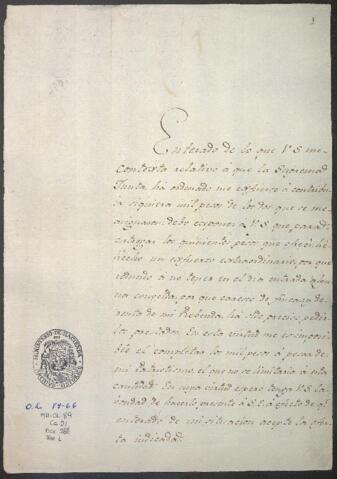 1
Enterado de lo que V S me
contexta relativo á que la Suprema
Junta ha ordenado me esfuerse á contribuir
siquiera mil pesos de los dos que se me
asignaron: debo exponer á V S que para
entregar los quinientos pesos que ofreci hé
hecho un esfuerzo extraordinario, por que
reducido á no tener en el dia entrada alguna
, por que caresco de
renta de mi Prebenda, há sido preciso pedir
los prestados. En esta ciudad me es imposi
ble el completar los mil pesos á pesar de
mi Patriotismo, el que no se limitaria á esta
cantidad. En cuya espero tenga V S la
bondad de hacerlo presente á S.E. á efecto de q.e
enterado de mi situacion acepte la
indicada.
MINISTERIO DE HACIENDA
O.L. 89-66
MH-OL-89
Ca. 21